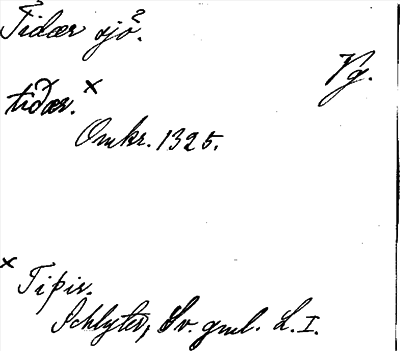 Tidær sjö?
Vg.
tiðær. x
Omkr. 1325.
x Tiþir.
Schlyter, Sv. gml. L. I.